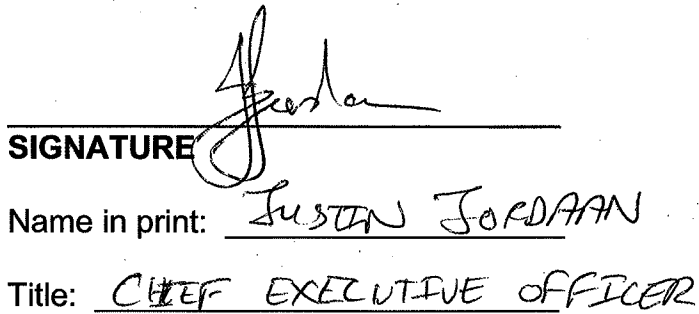 SIGNATURE
Name in print: JUSTIN JORDAAN
Title: CHIEF EXECUTIVE OFFICER